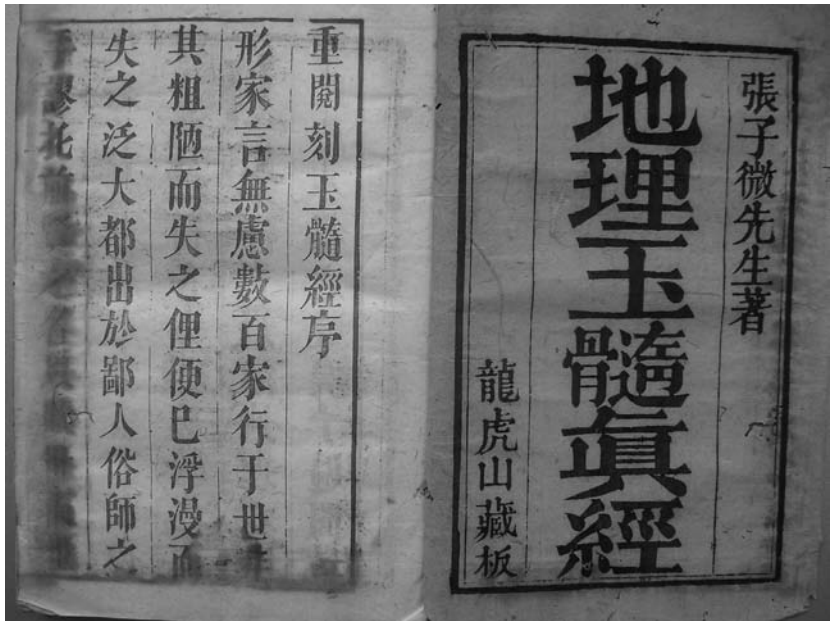 張子微先生著
地理玉髓眞經
龍虎山藏板
重閱刻玉髓經序
形家言無慮數百家行于世
其粗陋而失之俚便已浮漫而
失之泛大都出於鄙人俗師之
手謬托